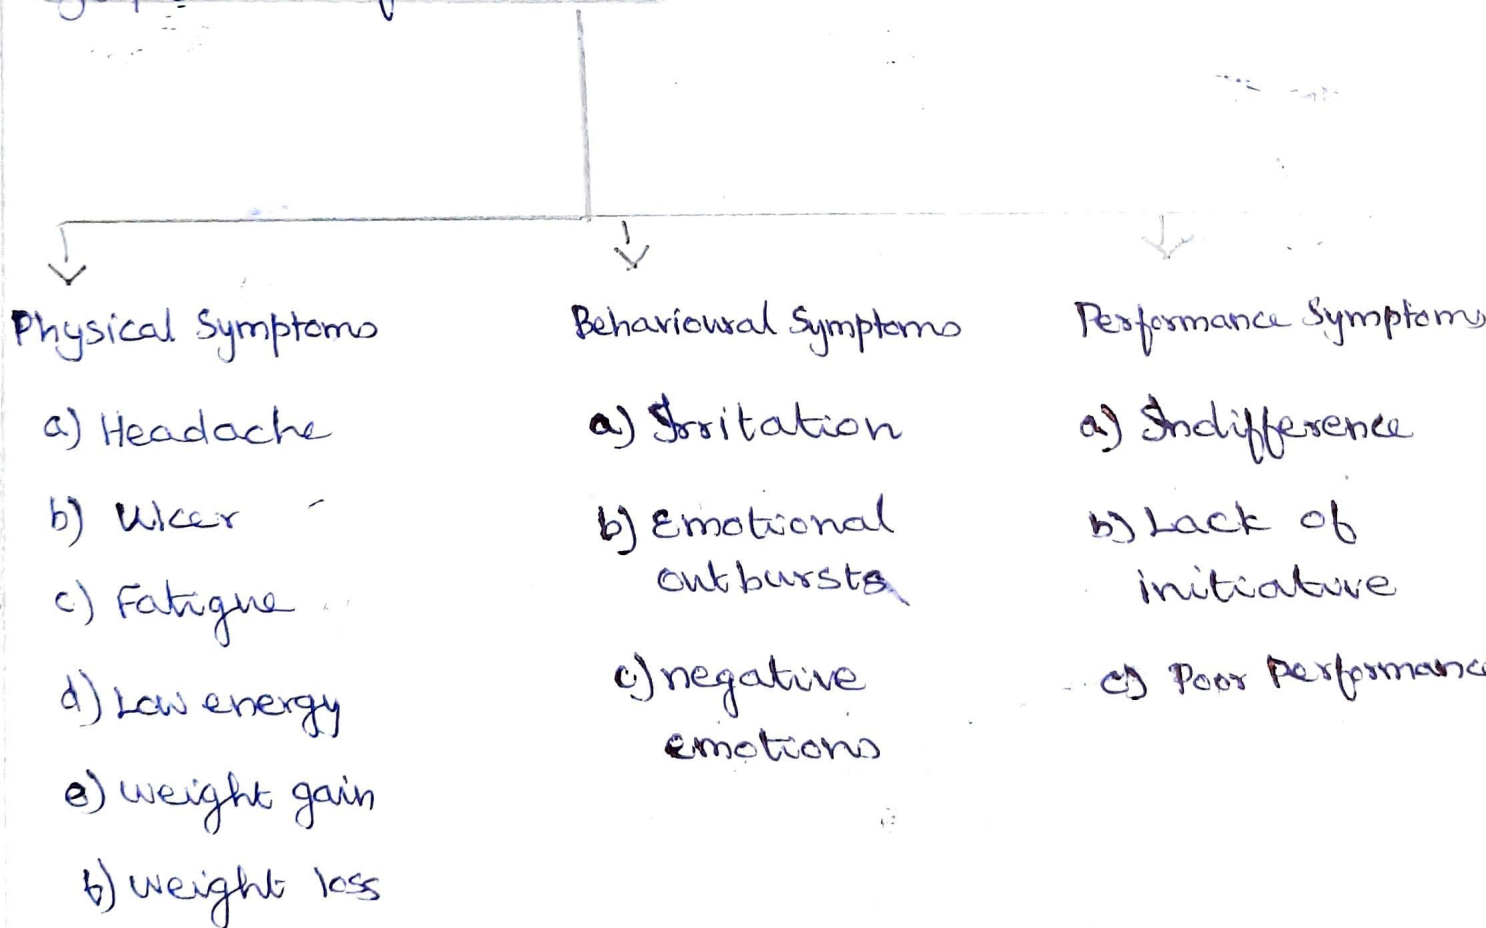 Physical Symptoms
a) Headache
b) Ulcer
c) Fatigue
d) Low energy
e) weight gain
f) weight loss
Behavioural Symptoms
a) Irritation
b) Emotional
outbursts
c) negative
emotions
Performance Symptoms
a) Indifference
b) Lack of
initiative
c) Poor Performanc